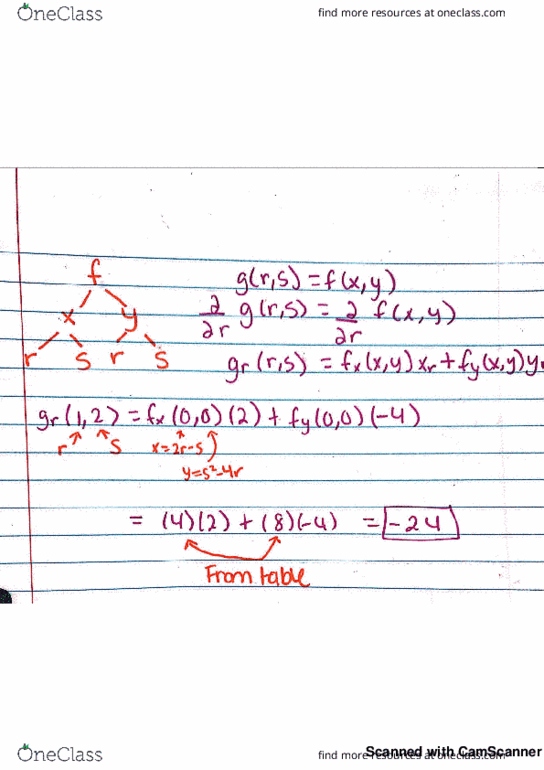 OneClass
find more resources at oneclass.com
f
x y
r s r s
g(r,s) = f(x,y)
∂/∂r g(r,s) = ∂/∂r f(x,y)
gr(r,s) = fx(x,y)xr + fy(x,y)y
gr(1,2) = fx(0,0)(2) + fy(0,0)(-4)
r s x=2r-s
y=s²-4r
= (4)(2) + (8)(-4) = -24
From table
OneClass
find more resources at oneclass.com
Scanned with CamScanner